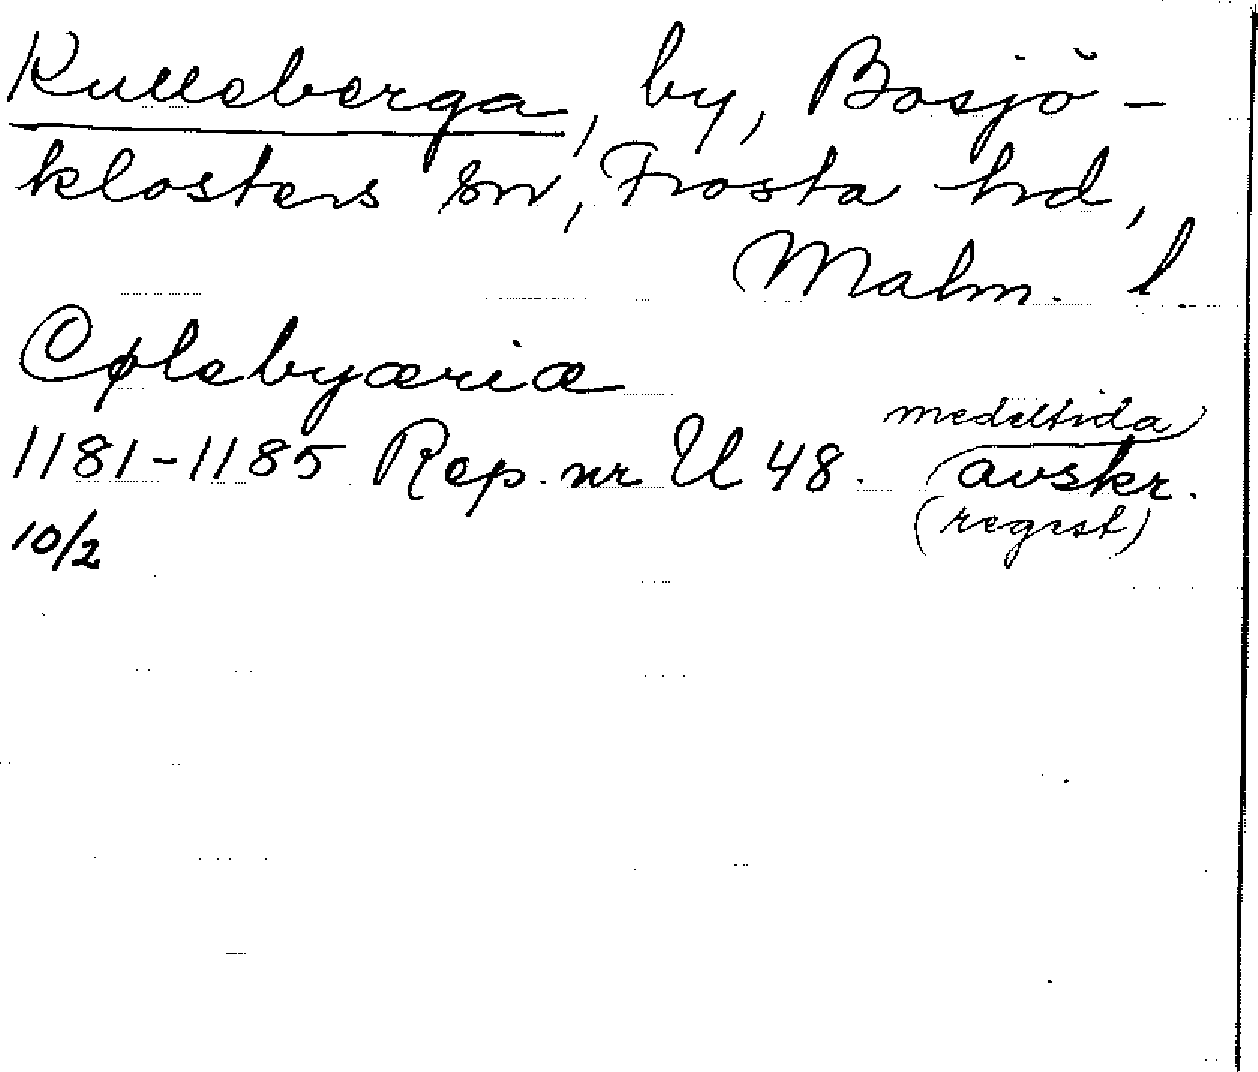 Kulleberga, by, Bosjö-
klosters sn, Frosta hd,
Malm. l
Cølebyæriæ
1181-1185 Rep. nr U 48. medeltida avskr.
(regest)
10/2